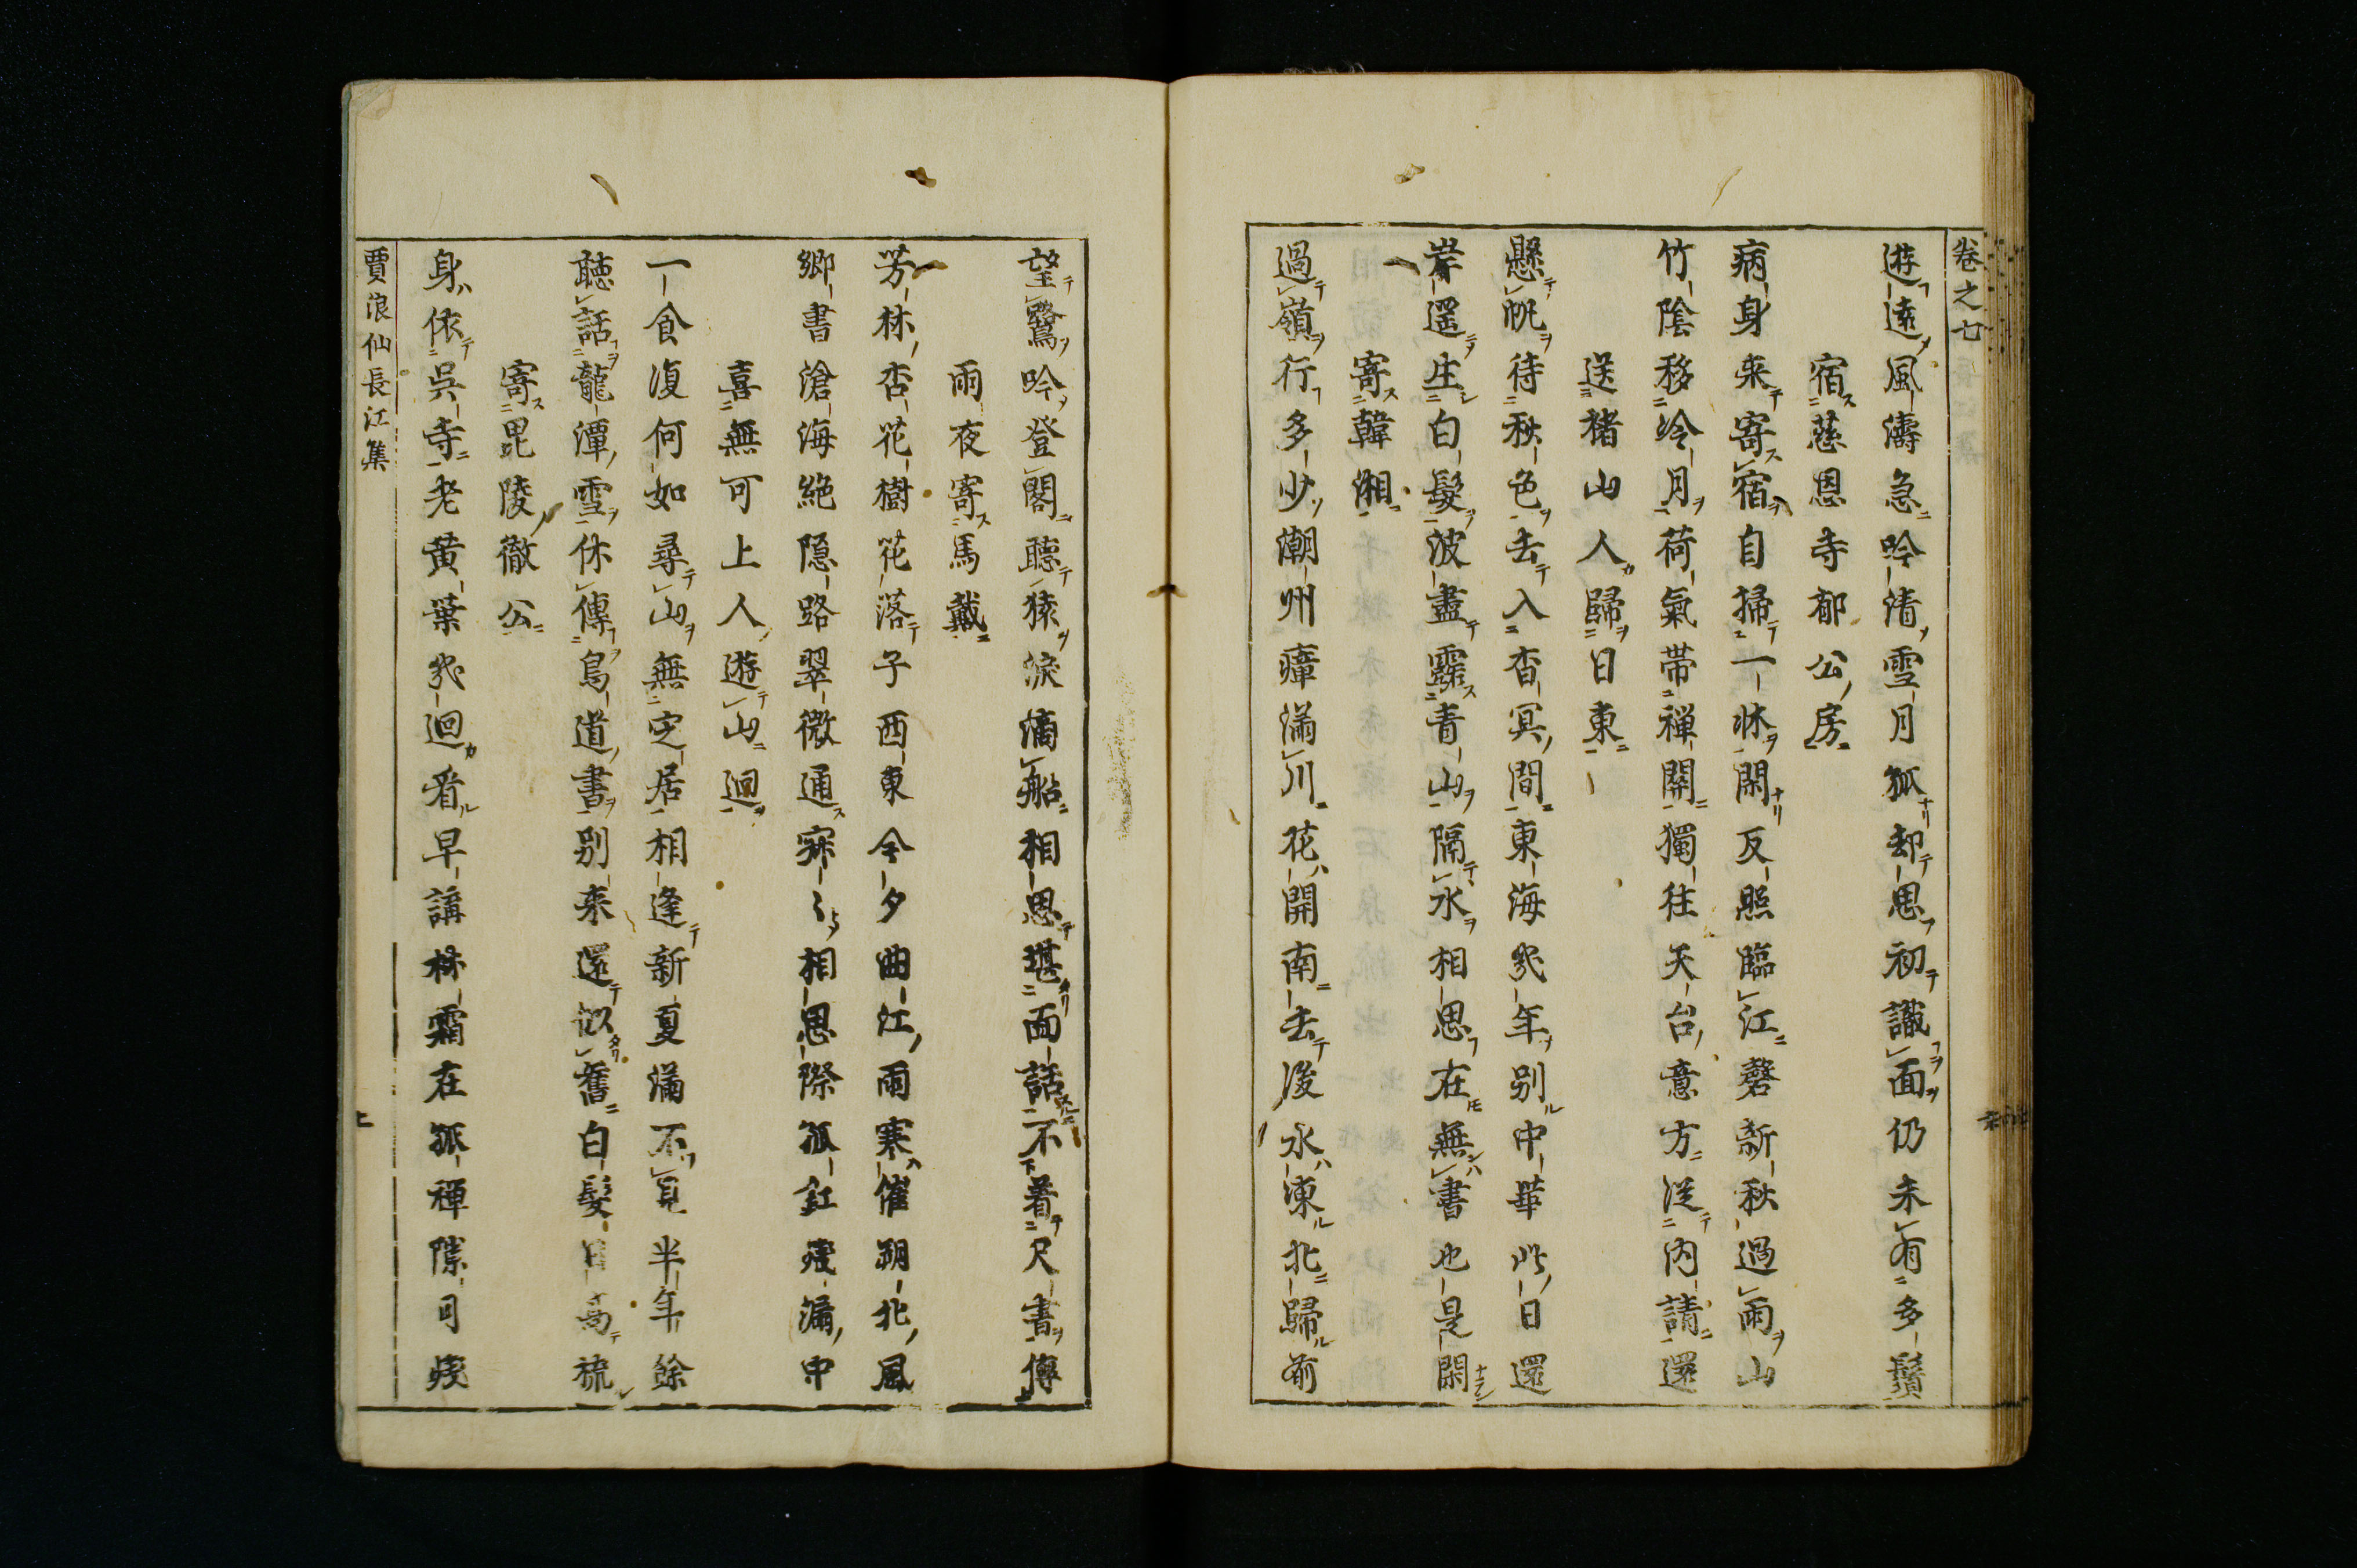 卷之七
遊遠風濤急吟清雪月孤却思初識面仍未有多鬚
宿慈恩寺郁公房
病身来寄宿自掃一牀閑反照臨江磬新秋過雨山
竹陰移冷月荷氣帯禅關獨往天台意方従内請還
送褚山人歸日東
懸帆待秋色去入杳冥間東海幾年別中華此日還
岸遥生白髮波盡露青山隔水相思在無書也是閑
寄韓湘
過嶺行多少潮州瘴滿川花開南去後水凍北歸前
望鷺吟登閣聽猿淚滴船相思堪面話不着尺書傳
雨夜寄馬戴
芳林杏花樹花落子西東今夕曲江雨寒催朔北風
郷書滄海絶隠路翠微通寂〻相思際孤釭殘漏中
喜無可上人遊山迴
一食復何如尋山無定居相逢新夏滿不見半年餘
聴話龍潭雪休傳鳥道書別来還似舊白髮日高梳
寄毘陵徹公
身依呉寺老黄葉幾迴看早講林霜在孤禅隙月殘
賈浪仙長江集